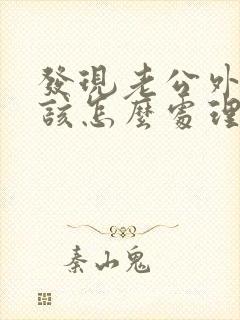 發現老公外
該怎麼處理
秦山鬼